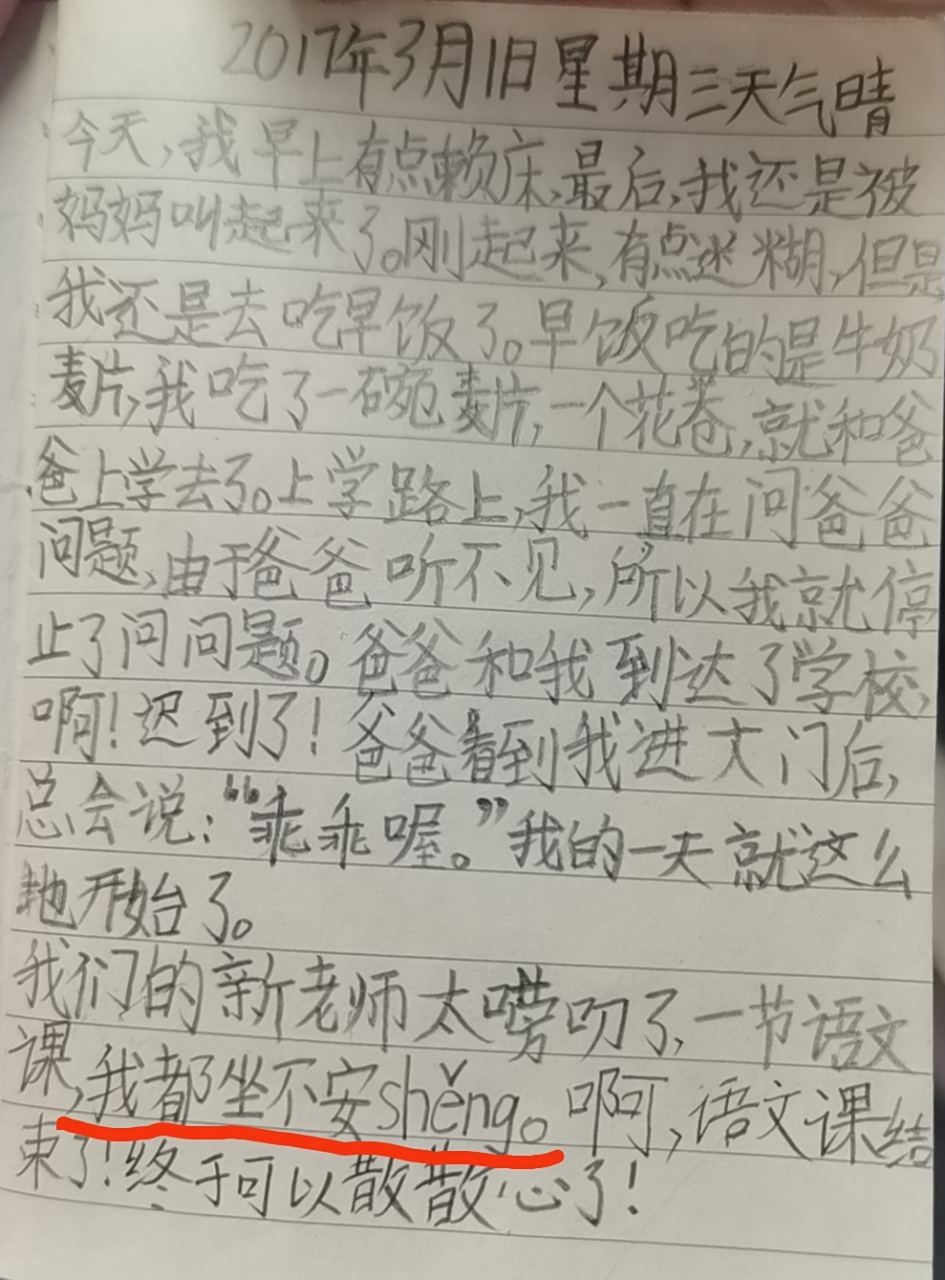 2017年3月1日星期三天气晴
今天,我早上有点赖床,最后,我还是被
妈妈叫起来了。刚起来,有点迷糊,但是
我还是去吃早饭了。早饭吃的是牛奶
麦片,我吃了一碗麦片,一个花卷,就和爸
爸上学去了。上学路上,我一直在问爸爸
问题,由于爸爸听不见,所以我就停
止了问问题。爸爸和我到达了学校,
啊!迟到了!爸爸看到我进大门后,
总会说:“乖乖喔。”我的一天就这么
地开始了。
我们的新老师太唠叨了,一节语文
课,我都坐不安shěng。啊,语文课结
束了!终于可以散散心了!